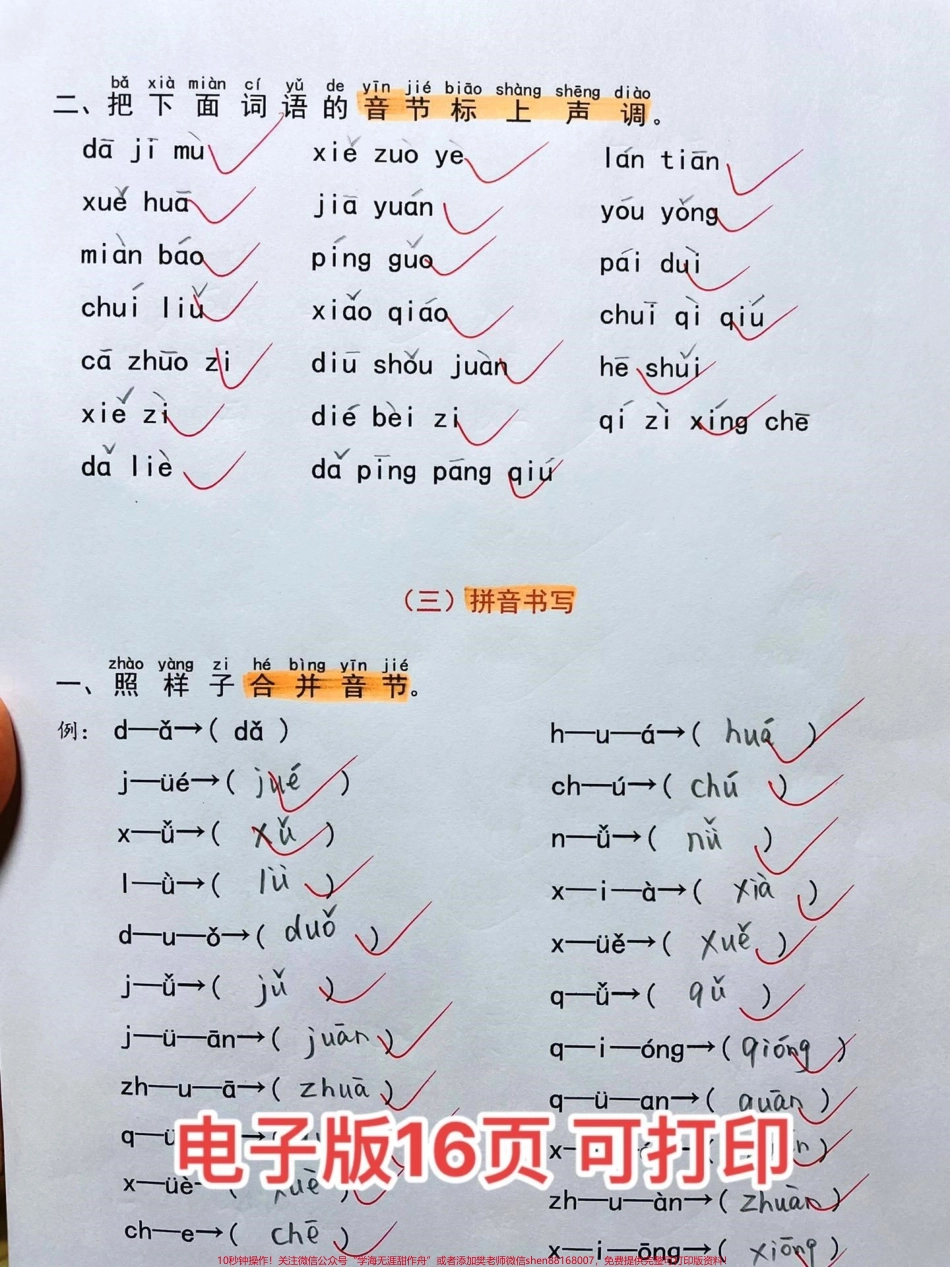 bǎ xià miàn cí yǔ de yīn jié biāo shàng shēng diào
二、把下面词语的音节标上声调。
dā jī mù xiě zuò yè lán tiān
xuě huā jiā yuán yóu yǒng
miàn báo píng guǒ pái duì
chuí liǔ xiǎo qiáo chuī qì qiú
cā zhuō zi diū shǒu juàn hē shuǐ
xiě zì dié bèi zi qí zì xíng chē
dǎ liè dǎ pīng pāng qiú
（三）拼音书写
zhào yàng zi hé bìng yīn jié
一、照样子合并音节。
例： d—ǎ→( dǎ ) h—u—á→( huá )
j—üé→( jué ) ch—ú→( chú )
x—ǚ→( xǔ ) n—ǚ→( nǚ )
l—ǜ→( lǜ ) x—i—à→( xià )
d—u—ǒ→( duǒ ) x—üě→( xuě )
j—ǚ→( jǔ ) q—ǚ→( qǔ )
j—ü—ān→( juān ) q—i—óng→( qióng )
zh—u—ā→( zhuā ) q—ü—an→( quān )
电子版16页 可打印
x—üè→( xuè ) zh—u—àn→( zhuàn )
ch—e→( chē ) x—i—ōng→( xiōng )
10秒钟操作！关注微信公众号“学海无涯甜作舟”或者添加樊老师微信shen88168007，免费提供完整可打印版资料！